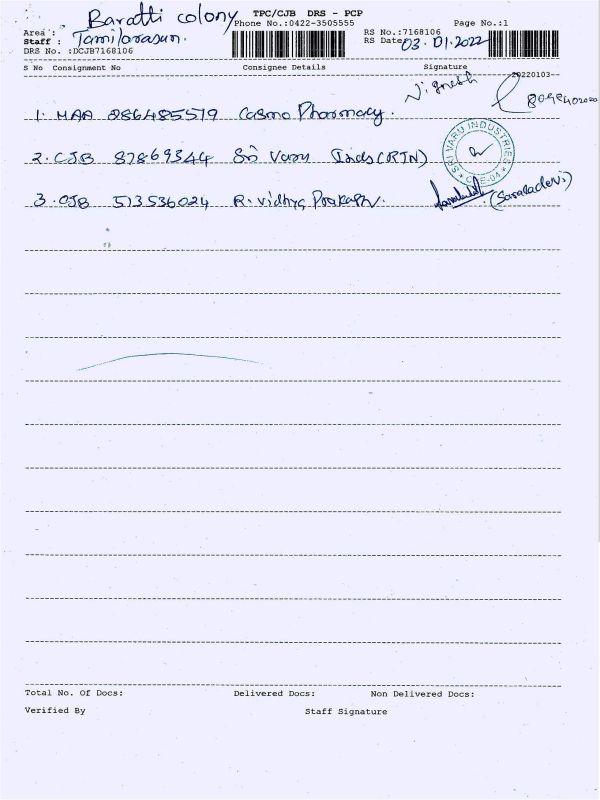 Baratti colony TPC/CJB DRS - PCP
Area : Phone No.:0422-3505555 Page No.:1
Staff : Tamilarasun. RS No.:7168106
DRS No. :DCJB7168106 RS Date: 03.01.2022
S No Consignment No Consignee Details Signature
20220103
Vignesh
1. MAA 886485579 Cosmo Pharmacy.
SRI VARU INDUSTRIES
2. CJB 87869344 Sri Varu Inds (RTN)
CBE-04
3. CJB 513536024 R. Vidhya Prakash. (Saraladevi)
Total No. Of Docs: Delivered Docs: Non Delivered Docs:
Verified By Staff Signature